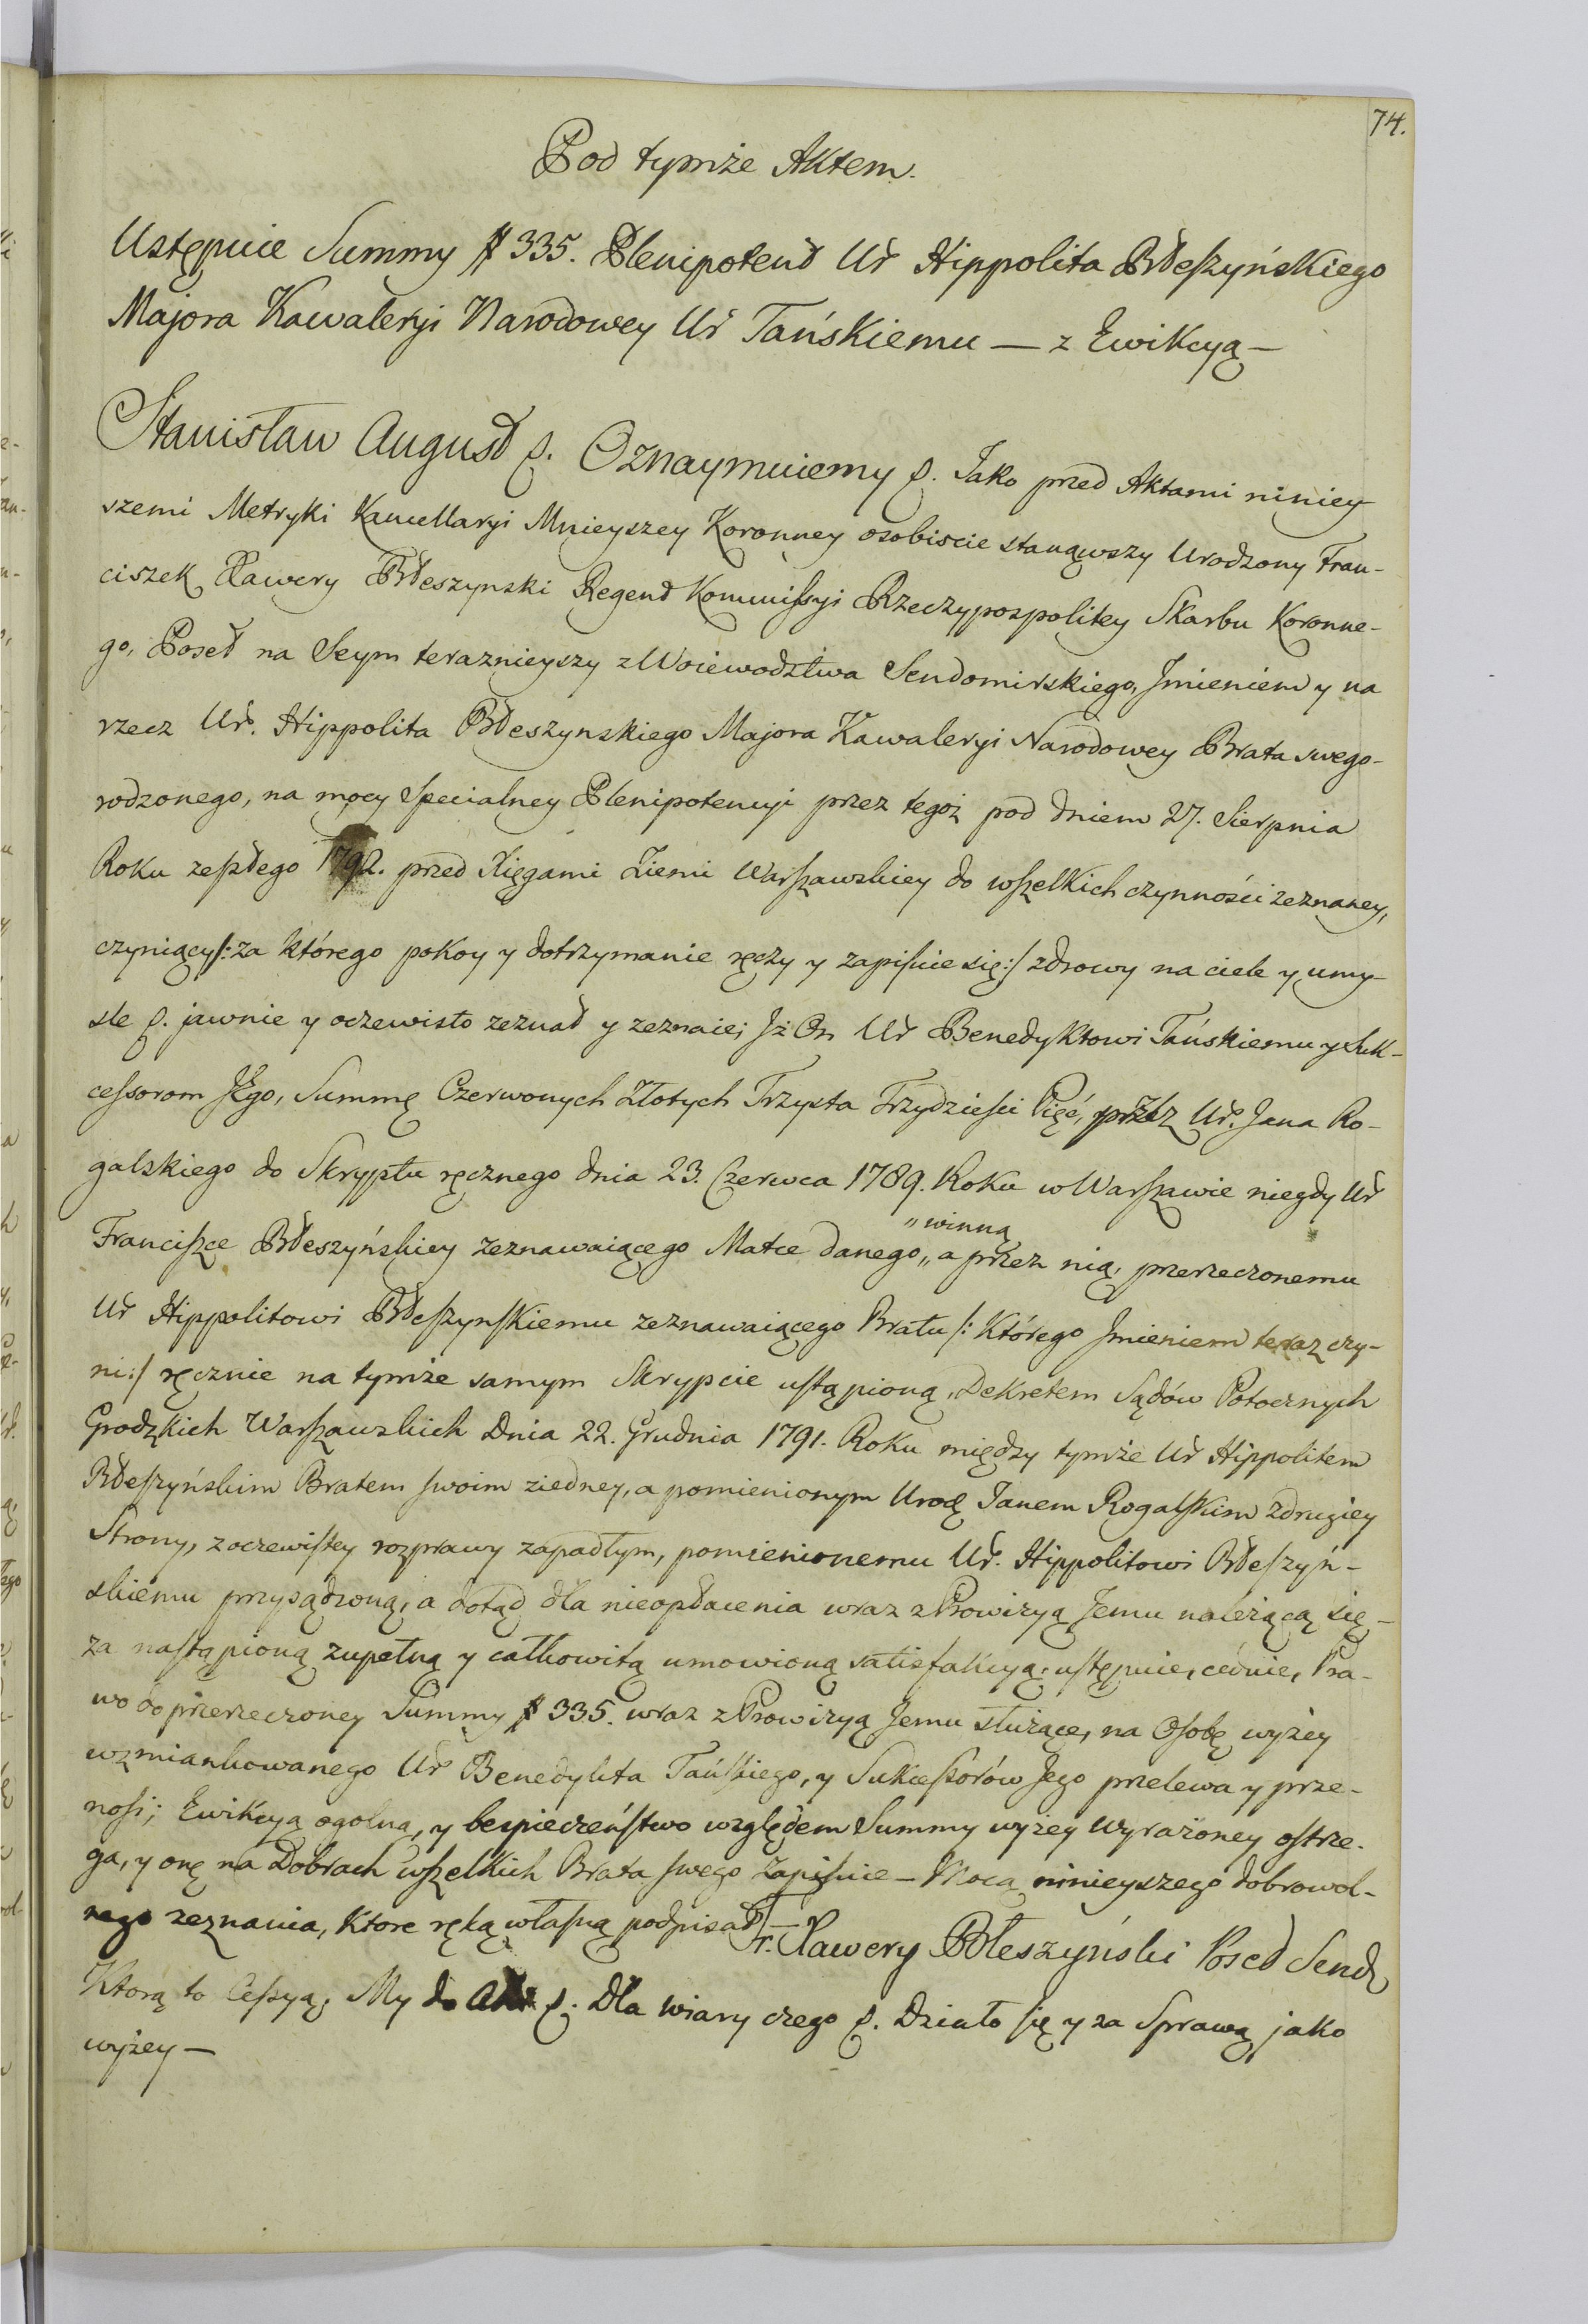 74.
Pod tymże Aktem.
Ustępuie Summy # 335. Plenipotent Ur Hippolita Błeszyńskiego
Majora Kawaleryi Narodowey Ur Tańskiemu — z Ewikcyą —
Stanisław August p. Oznaymuiemy p. Jako przed Aktami niniey
szemi Metryki Kancellaryi Mnieyszey Koronney osobiscie stanąwszy Urodzony Fran-
ciszek Xawery Błeszynski Regent Kommissyi Rzeczypospolitey Skarbu Koronne-
go, Poseł na Seym teraznieyszy z Woiewodztwa Sendomirskiego, Jmieniem y na
rzecz Ur. Hippolita Błeszynskiego Majora Kawaleryi Narodowey Brata swego-
rodzonego, na mocy Specialney Plenipotencyi przez tegoż pod dniem 27. Sierpnia
Roku zeszłego 1792. przed Xięgami Ziemi Warszawskiey do wszelkich czynności zeznaney,
czyniący /: za którego pokoy y dotrzymanie ręczy y zapisuie się :/ zdrowy na ciele y umy-
sle p. jawnie y oczewisto zeznał y zeznaie; Jż On Ur Benedyktowi Tańskiemu y Suk-
cessorom Jego, Summę Czerwonych Złotych Trzysta Trzydziesci Pięć, przez Ur. Jana Ro-
galskiego do Skryptu ręcznego dnia 23. Czerwca 1789. Roku w Warszawie niegdy Ur
Franciszce Błeszyńskiey zeznawaiącego Matce danego „ winną „ a przez nią, przerzeczonemu
Ur Hippolitowi Błeszynskiemu zeznawaiącego Bratu /: Którego Jmieniem teraz czy-
ni :/ ręcznie na tymże samym Skrypcie ustąpioną, Dekretem Sądów Potocznych
Grodzkich Warszawskich Dnia 22. Grudnia 1791. Roku między tymże Ur Hippolitem
Błeszyńskim Bratem swoim ziedney, a pomienionym Urod Janem Rogalskim zdrugiey
Strony, z oczewistey rozprawy zapadłym, pomienionemu Ur. Hippolitowi Błeszyń-
skiemu przysądzoną, a dotąd dla nieopłacenia wraz z Prowizyą Jemu należącą się —
za nastąpioną zupełną y całkowitą umowioną satisfakcyą, ustępuie, ceduie, Pra-
wo do przerzeczoney Summy # 335. wraz z Prowizyą Jemu służące, na Osobę wyżey
wzmiankowanego Ur Benedykta Tańskiego, y Sukcessorów Jego przelewa y prze-
nosi; Ewikcyą ogolną, y bespieczeństwo względem Summy wyżey wyrażoney ostrze-
ga, y onę na Dobrach wszelkich Brata swego zapisuie — Mocą ninieyszego dobrowol-
nego zeznania, Ktore ręką własną podpisał —
Fr. Xawery Błeszyński Poseł Send
Ktorą to Cessyą, My do Akt p. Dla wiary czego p. Działo się y za Sprawą jako
wyżey —